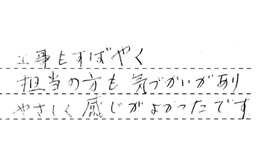 工事もすばやく
担当の方も気づかいがあり
やさしく感じがよかったです